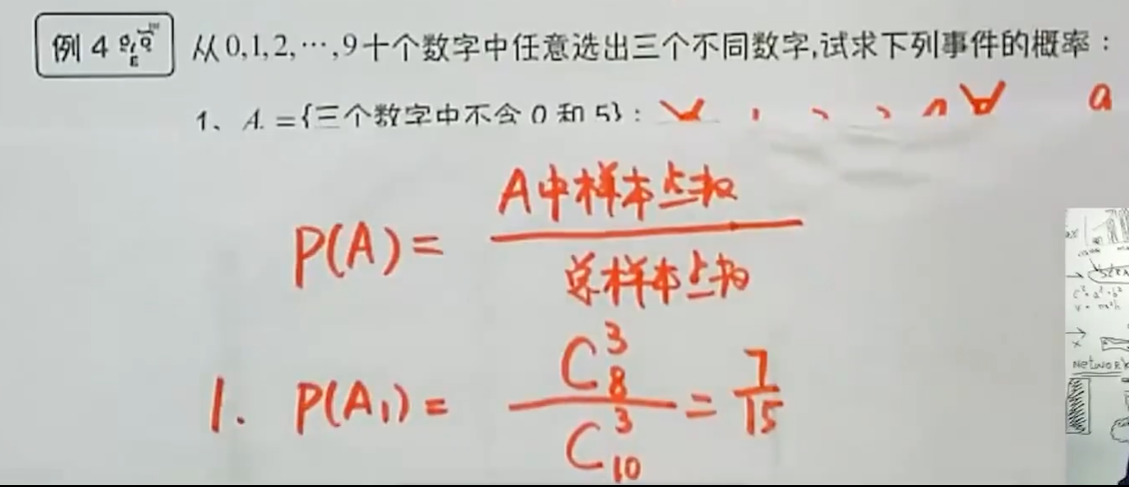 例 4 从 0,1,2,…,9 十个数字中任意选出三个不同数字,试求下列事件的概率：
1、A ={三个数字中不含 0 和 5}；
P(A) = A中样本点数
总样本点数
1. P(A₁) = C₈³ / C₁₀³ = 7/15
NETWORK